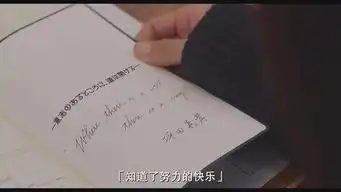 ―意志のあるところに、道は開ける―
Where there is a will
there is a way
「知道了努力的快乐」